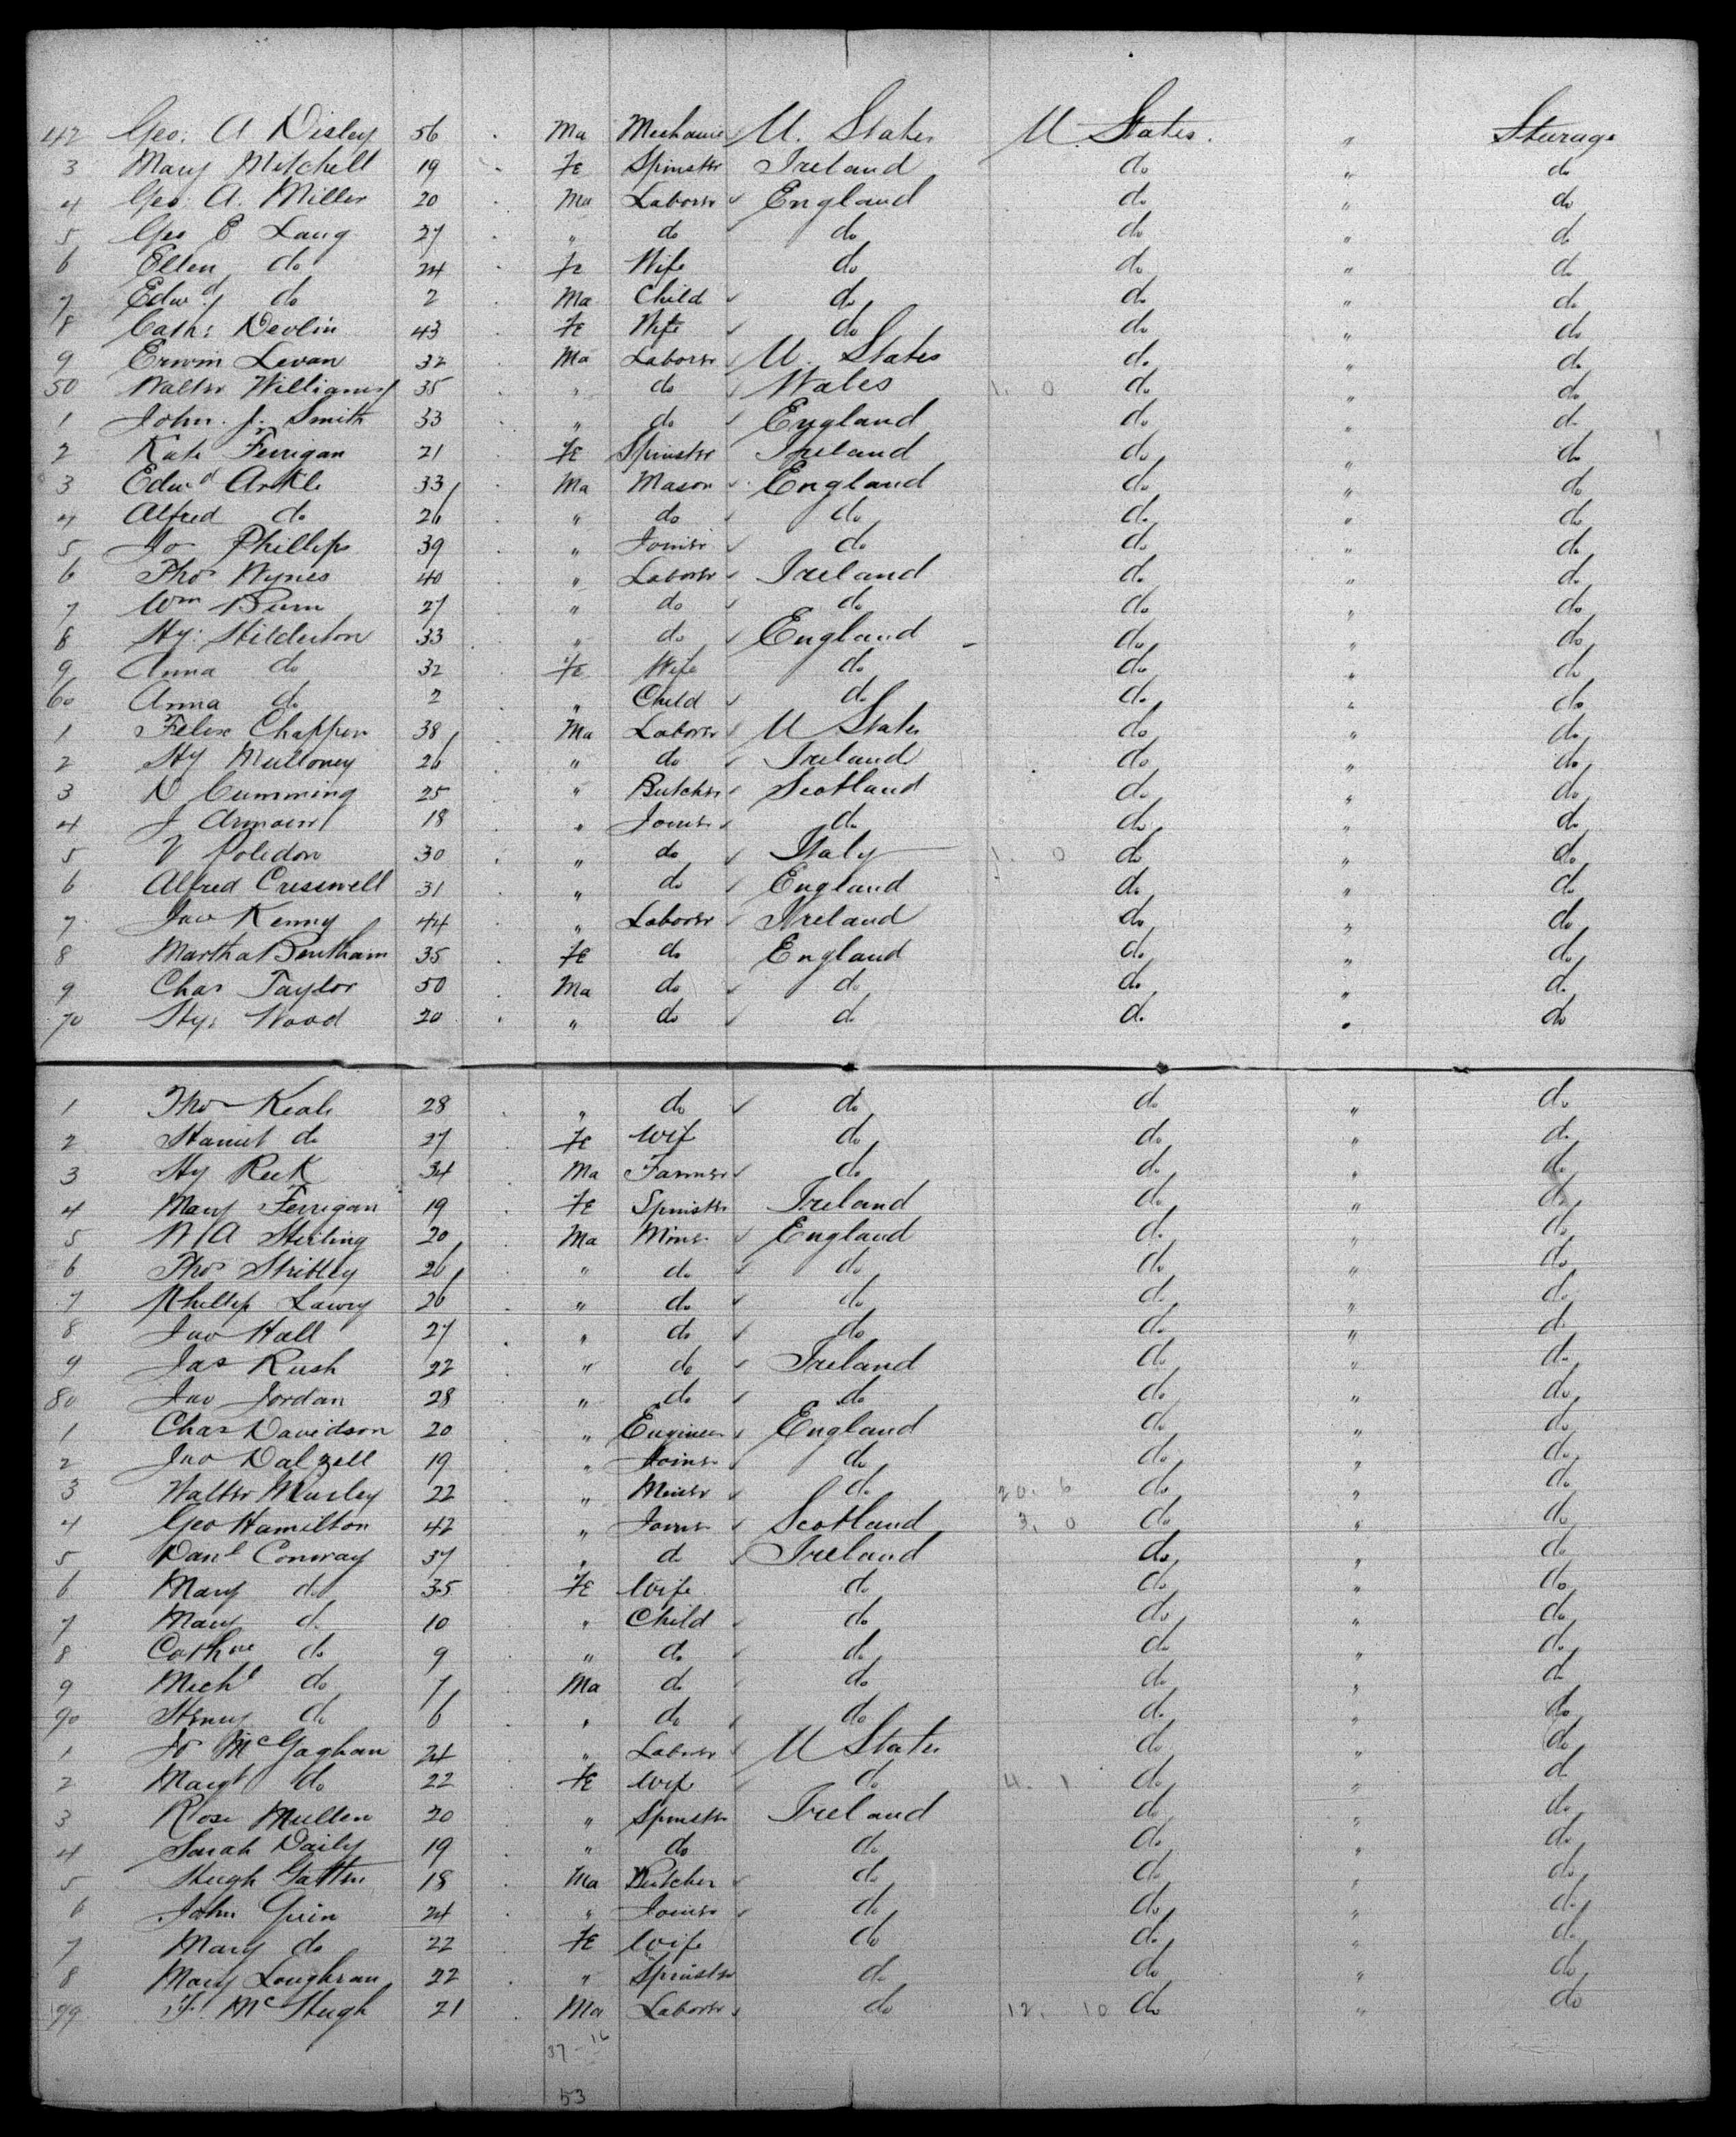 42 Geo: A Disley 56 Ma Mechanic U. States U. States. " Steerage
3 Mary Mitchell 19 Fe Spinster Ireland do " do
4 Geo: A. Miller 20 Ma Laborer England do " do
5 Geo E Lang 27 " do do do " do
6 Ellen do 24 Fe Wife do do " do
7 Edwd do 2 Ma Child do do " do
8 Cath: Devlin 43 Fe Wife do do " do
9 Erwin Levan 32 Ma Laborer U. States do " do
50 Walter Williams 35 " do Wales 1. 0 do " do
1 John. J. Smith 33 " do England do " do
2 Kate Ferrigan 21 Fe Spinster Ireland do " do
3 Edwd Arkle 33 Ma Mason England do " do
4 Alfred do 26 " do do do " do
5 Jo Phillips 39 " Joiner do do " do
6 Thos Wynes 40 " Laborer Ireland do " do
7 Wm Burn 27 " do do do " do
8 Hy: Hilderton 33 " do England do " do
9 Anna do 32 Fe Wife do do " do
60 Anna do 2 " Child do do " do
1 Felix Chapper 38 Ma Laborer U States do " do
2 Hy Mulloney 26 " do Ireland do " do
3 D Cumming 25 " Butcher Scotland do " do
4 J Armour 18 " Joiner do do " do
5 V Poledon 30 " do Italy 1. 0 do " do
6 Alfred Cresswell 31 " do England do " do
7 Jno Kenny 44 " Laborer Ireland do " do
8 Martha Bentham 35 Fe do England do " do
9 Chas Taylor 50 Ma do do do " do
70 Hy: Wood 20 " do do do " do
1 Thos Keate 28 " do do do " do
2 Harriet do 27 Fe Wife do do " do
3 Hy Reek 34 Ma Farmer do do " do
4 Mary Ferrigan 19 Fe Spinster Ireland do " do
5 W A Sterling 20 Ma Miner England do " do
6 Thos Stribley 26 " do do do " do
7 Phillip Lawry 26 " do do do " do
8 Jno Hall 27 " do do do " do
9 Jas Rush 22 " do Ireland do " do
80 Jno Jordan 28 " do do do " do
1 Chas Davidson 20 " Engineer England do " do
2 Jno Dalzell 19 " Joiner do do " do
3 Walter Musley 22 " Miner do 20. 6 do " do
4 Geo Hamilton 42 " Joiner Scotland 3. 0 do " do
5 Danl Conway 37 " do Ireland do " do
6 Mary do 35 Fe Wife do do " do
7 Mary do 10 " Child do do " do
8 Cathne do 9 " do do do " do
9 Michl do 7 Ma do do do " do
90 Henry do 6 " do do do " do
1 Jo McGaghan 24 " Laborer U States do " do
2 Margt do 22 Fe Wife do 4. 1 do " do
3 Rose Mullen 20 " Spinster Ireland do " do
4 Sarah Daily 19 " do do do " do
5 Hugh Gatten 18 Ma Butcher do do " do
6 John Guin 24 " Joiner do do " do
7 Mary do 22 Fe Wife do do " do
8 Mary Loughran 22 " Spinster do do " do
99 F. McHugh 21 Ma Laborer do 12. 10 do " do
37 - 16
53